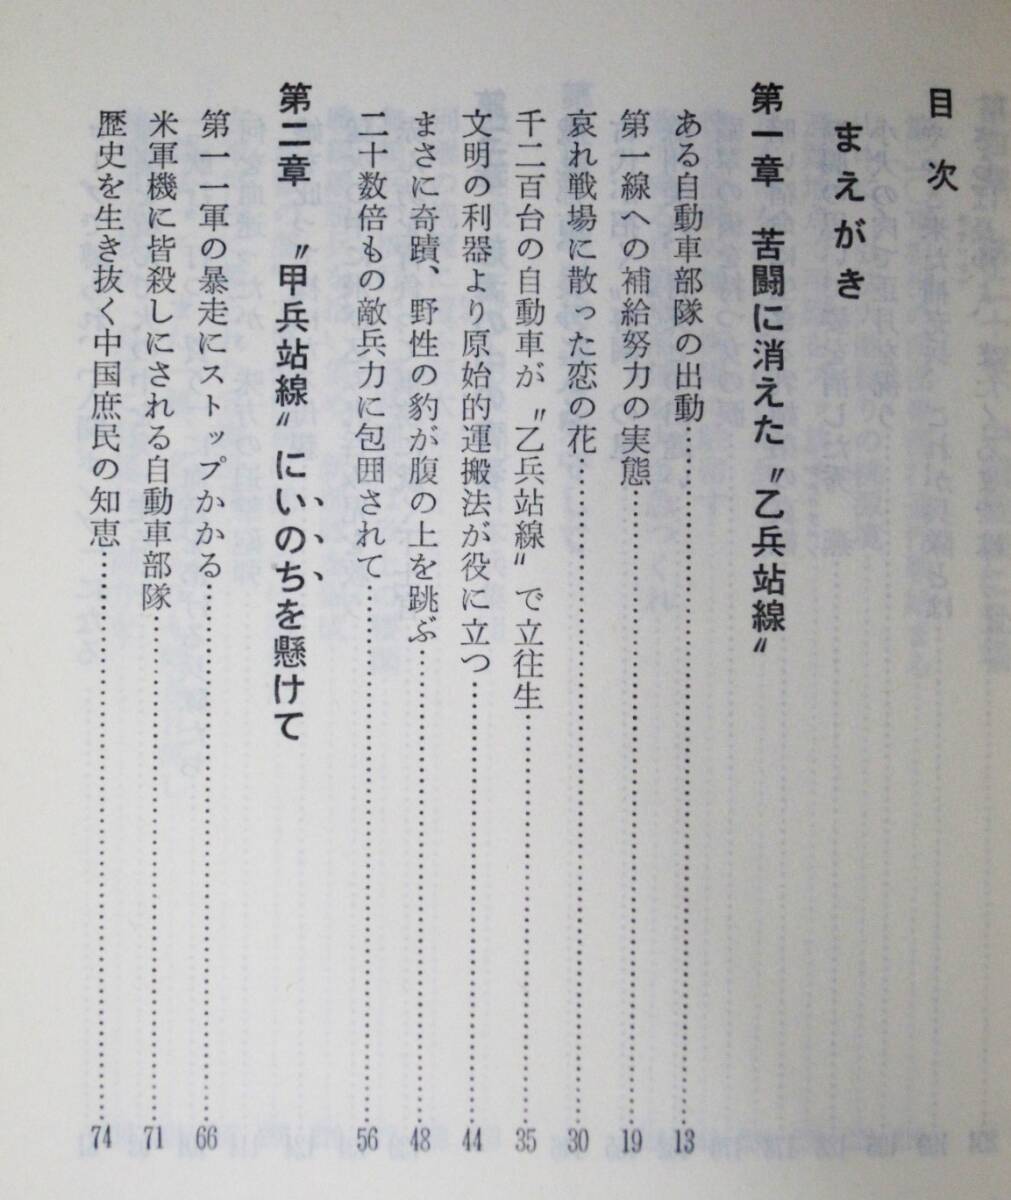 目次
まえがき
第一章　苦闘に消えた〝乙兵站線〟
ある自動車部隊の出動……13
第一線への補給努力の実態……19
哀れ戦場に散った恋の花……30
千二百台の自動車が〝乙兵站線〟で立往生……35
文明の利器より原始的運搬法が役に立つ……44
まさに奇蹟、野性の豹が腹の上を跳ぶ……48
二十数倍もの敵兵力に包囲されて……56
第二章　〝甲兵站線〟にいのちを懸けて
第一一軍の暴走にストップかかる……66
米軍機に皆殺しにされる自動車部隊……71
歴史を生き抜く中国庶民の知恵……74